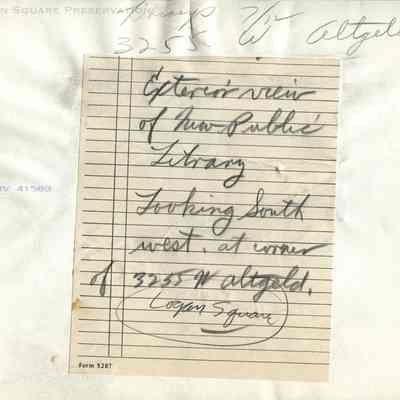 N SQUARE PRESERVATION
7/12
3255 W Altgeld
Exterior view
of New Public
Library
Looking South
west. at corner
of 3255 W altgeld.
Logan Square
Form 5287